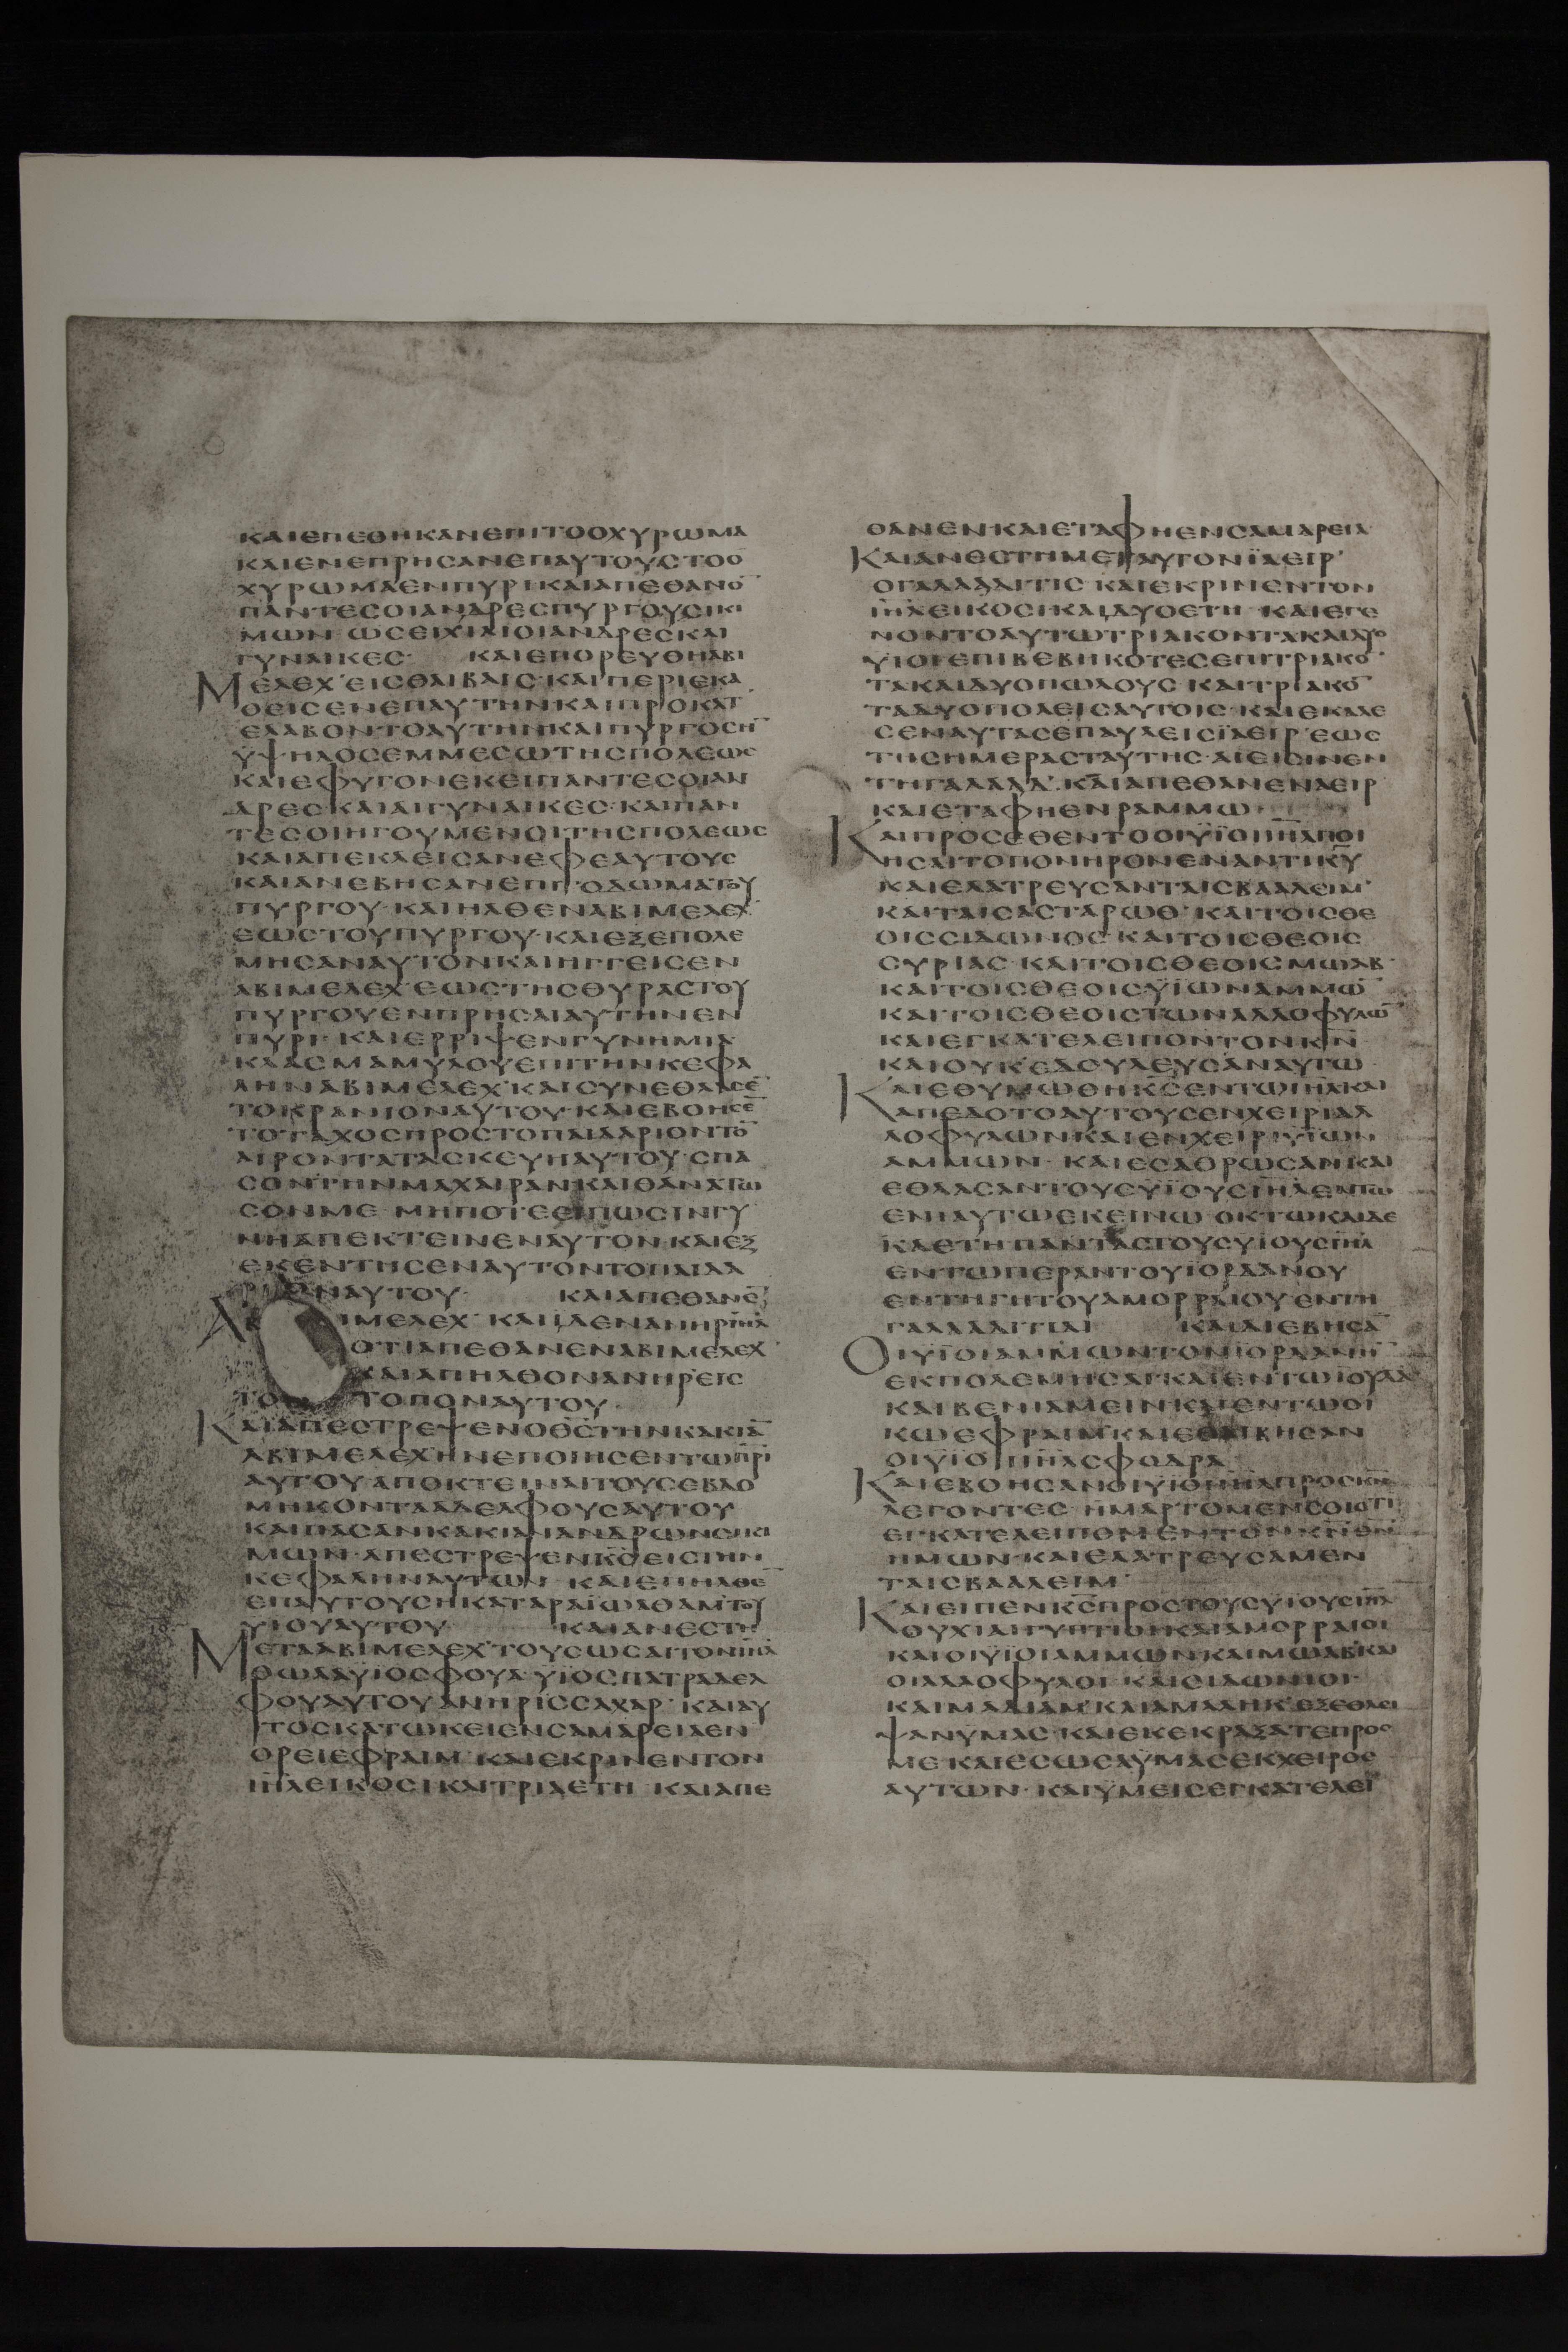 ΚΑΙΕΠΕΘΗΚΑΝΕΠΙΤΟΟΧΥΡΩΜΑ
ΚΑΙΕΝΕΠΡΗCΑΝΕΠΑΥΤΟΥCΤΟΟ
ΧΥΡΩΜΑΕΝΠΥΡΙΚΑΙΑΠΕΘΑΝΟ̅
ΠΑΝΤΕCΟΙΑΝΔΡΕCΠΥΡΓΟΥCΙΚΙ
ΜΩΝ·ΩCΕΙΧΙΛΙΟΙΑΝΔΡΕCΚΑΙ
ΓΥΝΑΙΚΕC· ΚΑΙΕΠΟΡΕΥΘΗΑΒΙ
ΜΕΛΕΧ ̓ΕΙCΘΑΙΒΑΙC·ΚΑΙΠΕΡΙΕΚΑ
ΘΕΙCΕΝΕΠΑΥΤΗΝΚΑΙΠΡΟΚΑΤ
ΕΛΑΒΟΝΤΟΑΥΤΗΝΚΑΙΠΥΡΓΟCΗ̅
ΫΨΗΛΟCΕΜΜΕCΩΤΗCΠΟΛΕΩC
ΚΑΙΕΦΥΓΟΝΕΚΕΙΠΑΝΤΕCΟΙΑΝ
ΔΡΕC·ΚΑΙΑΙΓΥΝΑΙΚΕC·ΚΑΙΠΑΝ
ΤΕCΟΙΗΓΟΥΜΕΝΟΙΤΗCΠΟΛΕΩC
ΚΑΙΑΠΕΚΛΕΙCΑΝΕΦΕΑΥΤΟΥC
ΚΑΙΑΝΕΒΗCΑΝΕΠΙΤΟΔΩΜΑΤΟΥ
ΠΥΡΓΟΥ·ΚΑΙΗΛΘΕΝΑΒΙΜΕΛΕΧ ̓
ΕΩCΤΟΥΠΥΡΓΟΥ·ΚΑΙΕΞΕΠΟΛΕ
ΜΗCΑΝΑΥΤΟΝΚΑΙΗΓΓΕΙCΕΝ
ΑΒΙΜΕΛΕΧ ̓ΕΩCΤΗCΘΥΡΑCΤΟΥ
ΠΥΡΓΟΥΕΝΠΡΗCΑΙΑΥΤΗΝΕΝ
ΠΥΡΙ·ΚΑΙΕΡΡΙΨΕΝΓΥΝΗΜΙΑ
ΚΛΑCΜΑΜΥΛΟΥΕΠΙΤΗΝΚΕΦΑ
ΛΗΝΑΒΙΜΕΛΕΧ ̓ΚΑΙCΥΝΕΘΛΑCΕ̅
ΤΟΚΡΑΝΙΟΝΑΥΤΟΥ·ΚΑΙΕΒΟΗCΕ̅
ΤΟΤΑΧΟCΠΡΟCΤΟΠΑΙΔΑΡΙΟΝΤΟ̅
ΑΙΡΟΝΤΑΤΑCΚΕΥΗΑΥΤΟΥ·CΠΑ
CΟΝΤΗΝΜΑΧΑΙΡΑΝΚΑΙΘΑΝΑΤΩ
CΟΝΜΕ·ΜΗΠΟΤΕΕΙΠΩCΙΝΓΥ
ΝΗΑΠΕΚΤΕΙΝΕΝΑΥΤΟΝ·ΚΑΙΕΞ
ΕΚΕΝΤΗCΕΝΑΥΤΟΝΤΟΠΑΙΔΑ
ΡΙΟΝΑΥΤΟΥ· ΚΑΙΑΠΕΘΑΝΕ̅
ΑΒΙΜΕΛΕΧ ̓ΚΑΙΙΔΕΝΑΝΗΡΙ̅Η̅Λ̅
ΟΤΙΑΠΕΘΑΝΕΝΑΒΙΜΕΛΕΧ ̓
ΚΑΙΑΠΗΛΘΟΝΑΝΗΡΕΙC
ΤΟ ΤΟΠΟΝΑΥΤΟΥ·
ΚΑΙΑΠΕCΤΡΕΨΕΝΟΘ̅C̅ΤΗΝΚΑΚΙΑ̅
ΑΒΙΜΕΛΕΧΗΝΕΠΟΙΗCΕΝΤΩΠ̅Ρ̅Ι̅
ΑΥΤΟΥΑΠΟΚΤΕΙΝΑΙΤΟΥCΕΒΔΟ
ΜΗΚΟΝΤΑΑΔΕΛΦΟΥCΑΥΤΟΥ
ΚΑΙΠΑCΑΝΚΑΚΙΑΝΑΝΔΡΩΝCΙΚΙ
ΜΩΝ·ΑΠΕCΤΡΕΨΕΝΚ̅C̅ΕΙCΤΗΝ
ΚΕΦΑΛΗΝΑΥΤΩΝ·ΚΑΙΕΠΗΛΘΕ̅
ΕΠΑΥΤΟΥCΗΚΑΤΑΡΑΪΩΑΘΑΜΤΟΥ
ΥΙΟΥΑΥΤΟΥ· ΚΑΙΑΝΕCΤΗ
ΜΕΤΑΑΒΙΜΕΛΕΧ ̓ΤΟΥCΩCΑΙΤΟΝΙ̅Η̅Λ̅
ΘΩΛΑΫΙΟCΦΟΥΑ·ΫΙΟCΠΑΤΡΑΔΕΛ
ΦΟΥΑΥΤΟΥΑΝΗΡΙCCΑΧΑΡ ̓ΚΑΙΑΥ
ΤΟCΚΑΤΩΚΕΙΕΝCΑΜΑΡΕΙΑΕΝ
ΟΡΕΙΕΦΡΑΙΜ·ΚΑΙΕΚΡΙΝΕΝΤΟΝ
Ι̅Η̅Λ̅ΕΙΚΟCΙΚΑΙΤΡΙΑΕΤΗ·ΚΑΙΑΠΕ
ΘΑΝΕΝ·ΚΑΙΕΤΑΦΗΕΝCΑΜΑΡΕΙΑ
ΚΑΙΑΝΕCΤΗΜΕΤΑΥΤΟΝΪΑΕΙΡ ̓
ΟΓΑΛΑΑΔΙΤΙC·ΚΑΙΕΚΡΙΝΕΝΤΟΝ
Ι̅Η̅Λ̅ΕΙΚΟCΙΚΑΙΔΥΟΕΤΗ·ΚΑΙΕΓΕ
ΝΟΝΤΟΑΥΤΩΤΡΙΑΚΟΝΤΑΚΑΙΔΥΟ
ΥΙΟΙΕΠΙΒΕΒΗΚΟΤΕCΕΠΙΤΡΙΑΚΟ̅
ΤΑΚΑΙΔΥΟΠΩΛΟΥC·ΚΑΙΤΡΙΑΚΟ̅
ΤΑΔΥΟΠΟΛΕΙCΑΥΤΟΙC·ΚΑΙΕΚΑΛΕ
CΕΝΑΥΤΑCΕΠΑΥΛΕΙCΪΑΕΙΡ ̓ΕΩC
ΤΗCΗΜΕΡΑCΤΑΥΤΗC·ΑΙΕΙCΙΝΕΝ
ΤΗΓΑΛΑΑΔ ̓·ΚΑΙΑΠΕΘΑΝΕΝΑΕΙΡ
ΚΑΙΕΤΑΦΗΕΝΡΑΜΜΩ·
ΚΑΙΠΡΟCΕΘΕΝΤΟΟΙΫΪΟΙΙ̅Η̅Λ̅ΠΟΙ
ΗCΑΙΤΟΠΟΝΗΡΟΝΕΝΑΝΤΙΚ̅Υ̅
ΚΑΙΕΛΑΤΡΕΥCΑΝΤΑΙCΒΑΑΛΕΙΜ ̓
ΚΑΙΤΑΙCΑCΤΑΡΩΘ ̓ΚΑΙΤΟΙCΘΕ
ΟΙCCΙΔΩΝΟC·ΚΑΙΤΟΙCΘΕΟΙC
CΥΡΙΑC·ΚΑΙΤΟΙCΘΕΟΙCΜΩΑΒ·
ΚΑΙΤΟΙCΘΕΟΙCΫΙΩΝΑΜΜΩ̅
ΚΑΙΤΟΙCΘΕΟΙCΤΩΝΑΛΛΟΦΥΛΩ̅
ΚΑΙΕΓΚΑΤΕΛΕΙΠΟΝΤΟΝΚ̅Ν̅
ΚΑΙΟΥΚΕΔΟΥΛΕΥCΑΝΑΥΤΩ
ΚΑΙΕΘΥΜΩΘΗΚ̅C̅ΕΝΤΩΙ̅Η̅Λ̅ΚΑΙ
ΑΠΕΔΟΤΟΑΥΤΟΥCΕΝΧΕΙΡΙΑΛ
ΛΟΦΥΛΩΝΚΑΙΕΝΧΕΙΡΙΫΪΩΝ
ΑΜΜΩΝ·ΚΑΙΕCΑΘΡΩCΑΝΚΑΙ
ΕΘΛΑCΑΝΤΟΥCΫΪΟΥCΙ̅Η̅Λ̅ΕΝΤΩ
ΕΝΙΑΥΤΩΕΚΕΙΝΩ·ΟΚΤΩΚΑΙΔΕ
ΚΑΕΤΗΠΑΝΤΑCΤΟΥCΥΙΟΥCΙ̅Η̅Λ̅
ΕΝΤΩΠΕΡΑΝΤΟΥΙΟΡΔΑΝΟΥ
ΕΝΤΗΓΗΤΟΥΑΜΟΡΡΑΙΟΥ·ΕΝΤΗ
ΓΑΛΑΑΔΙΤΙΔΙ ΚΑΙΔΙΕΒΗCΑ̅
ΟΙΫΪΟΙΑΜΜΩΝΤΟΝΙΟΡΔΑΝΗ̅
ΕΚΠΟΛΕΜΗCΑΙ·ΚΑΙΕΝΤΩΙΟΥΔΑ
ΚΑΙΒΕΝΙΑΜΕΙΝΚΑΙΕΝΤΩΟΙ
ΚΩΕΦΡΑΙΜ·ΚΑΙΕΘΛΙΒΗCΑΝ
ΟΙΥΪΟΙΙ̅Η̅Λ̅CΦΟΔΡΑ·
ΚΑΙΕΒΟΗCΑΝΟΙΥΪΟΙΙ̅Η̅Λ̅ΠΡΟCΚ̅Ν̅
ΛΕΓΟΝΤΕC·ΗΜΑΡΤΟΜΕΝCΟΙΟΤΙ
ΕΓΚΑΤΕΛΕΙΠΟΜΕΝΤΟΝΚ̅Ν̅Θ̅Ν̅
ΗΜΩΝ·ΚΑΙΕΛΑΤΡΕΥCΑΜΕΝ
ΤΑΙCΒΑΑΛΕΙΜ·
ΚΑΙΕΙΠΕΝΚ̅C̅ΠΡΟCΤΟΥCΥΪΟΥCΙ̅Η̅Λ̅
ΟΥΧΙΑΙΓΥΠΤΙΟΙΚΑΙΑΜΟΡΡΑΙΟΙ
ΚΑΙΟΙΫΪΟΙΑΜΜΩΝ·ΚΑΙΜΩΑΒ ̓ΚΑΙ
ΟΙΑΛΛΟΦΥΛΟΙ·ΚΑΙCΙΔΩΝΙΟΙ·
ΚΑΙΜΑΔΙΑΜ ̓ΚΑΙΑΜΑΛΗΚ ̓ΕΞΕΘΛΕΙ
ΨΑΝΫΜΑC·ΚΑΙΕΚΕΚΡΑΞΑΤΕΠΡΟC
ΜΕ·ΚΑΙΕCΩCΑΫΜΑCΕΚΧΕΙΡΟC
ΑΥΤΩΝ·ΚΑΙΫΜΕΙCΕΓΚΑΤΕΛΕΙ